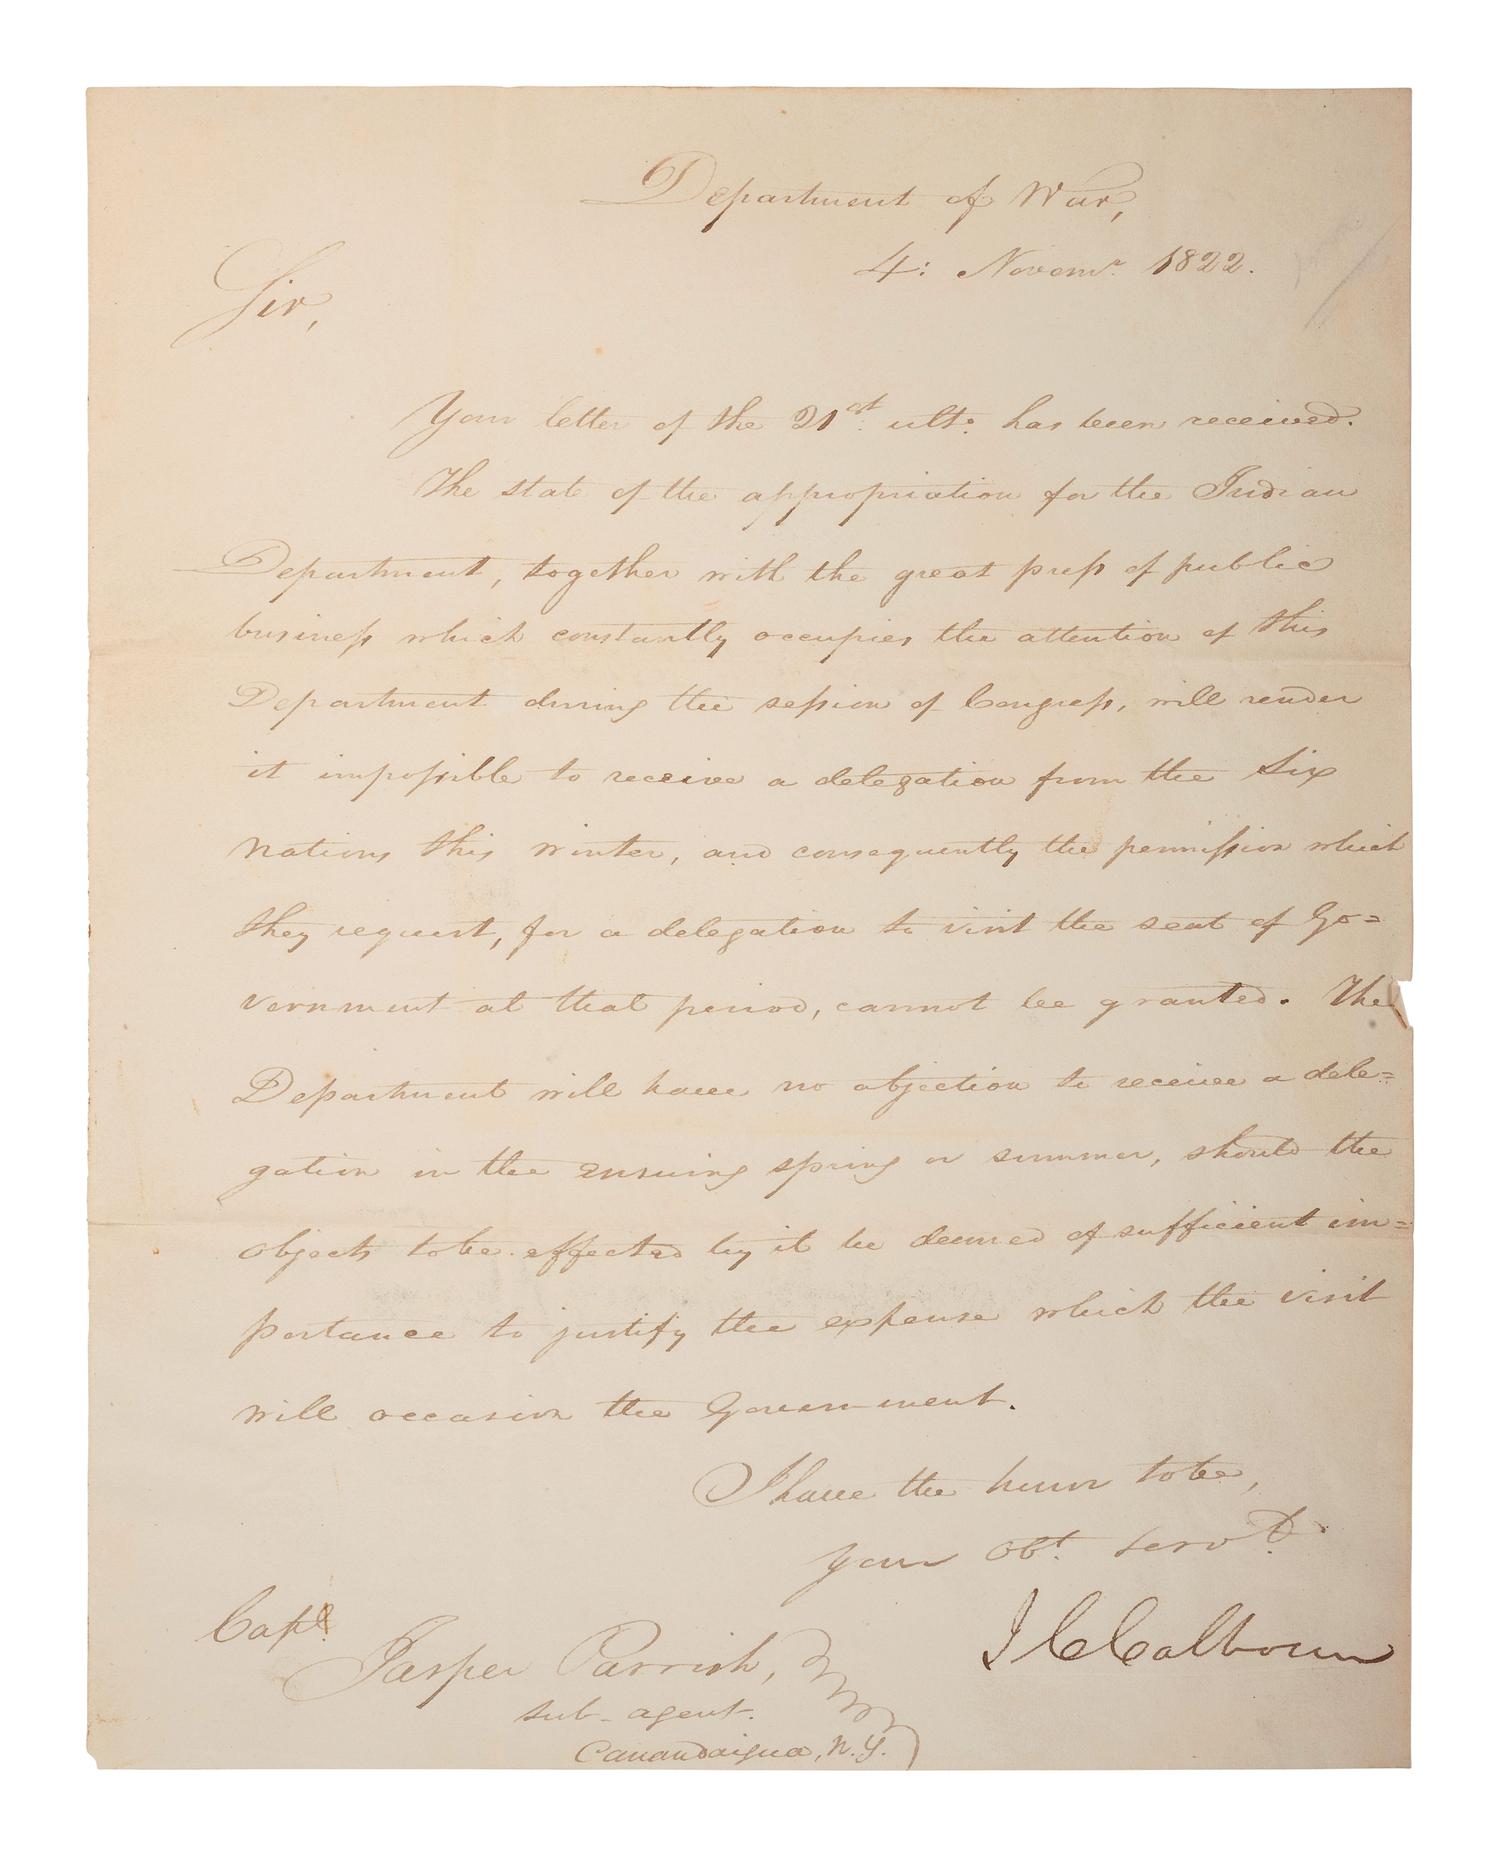 Department of War,
4: Novemr. 1822.
Sir,
Your letter of the 21st. ulto. has been received.
The state of the appropriation for the Indian
Department, together with the great press of public
business which constantly occupies the attention of this
Department during the session of Congress, will render
it impossible to receive a delegation from the Six
Nations this winter, and consequently the permission which
they request, for a delegation to visit the seat of Go=
vernment at that period, cannot be granted. The
Department will have no objection to receive a dele=
gation in the ensuing spring or summer, should the
objects to be effected by it be deemed of sufficient im=
portance to justify the expense which the visit
will occasion the Government.
I have the honor to be,
your Obt. Servt.
J C Calhoun
Capt.
Jasper Parrish,
sub-agent.
Canandaigua, N.Y.